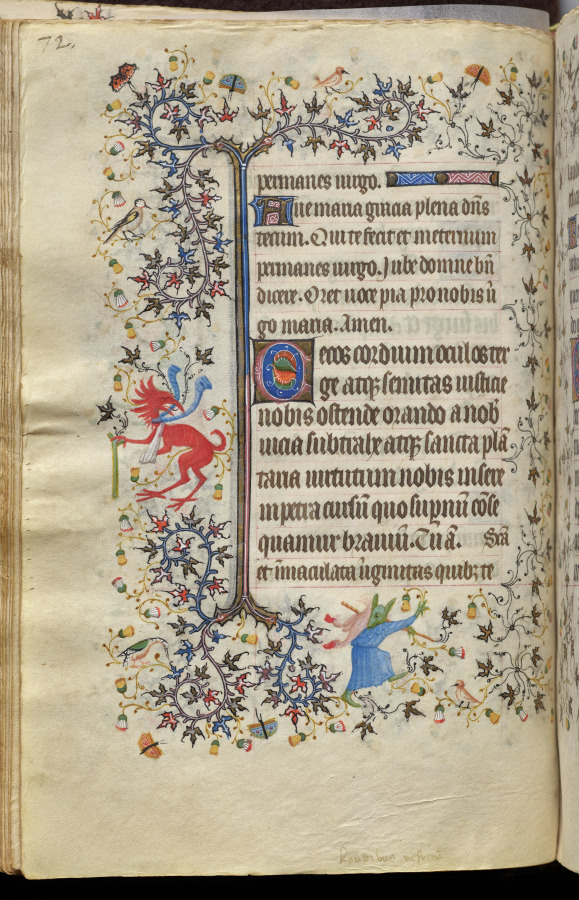 72.
permanes uirgo.
Aue maria gracia plena dn̄s
tecum. Qui te fecit et in eternum
permanes uirgo. Iube domne bn̄
dicere. Oret uoce pia pro nobis ū
go maria. Amen.
Decos cordium oculos ter
ge atqꝫ semitas iusticie
nobis ostende orando a nob
uicia subtrahe atqꝫ sancta plā
taria uirtutum nobis insere
inpetra cursū quo supnū cōse
quamur brauiū. Tu ā. Scā
et īmaculata ūginitas quibꝫ te